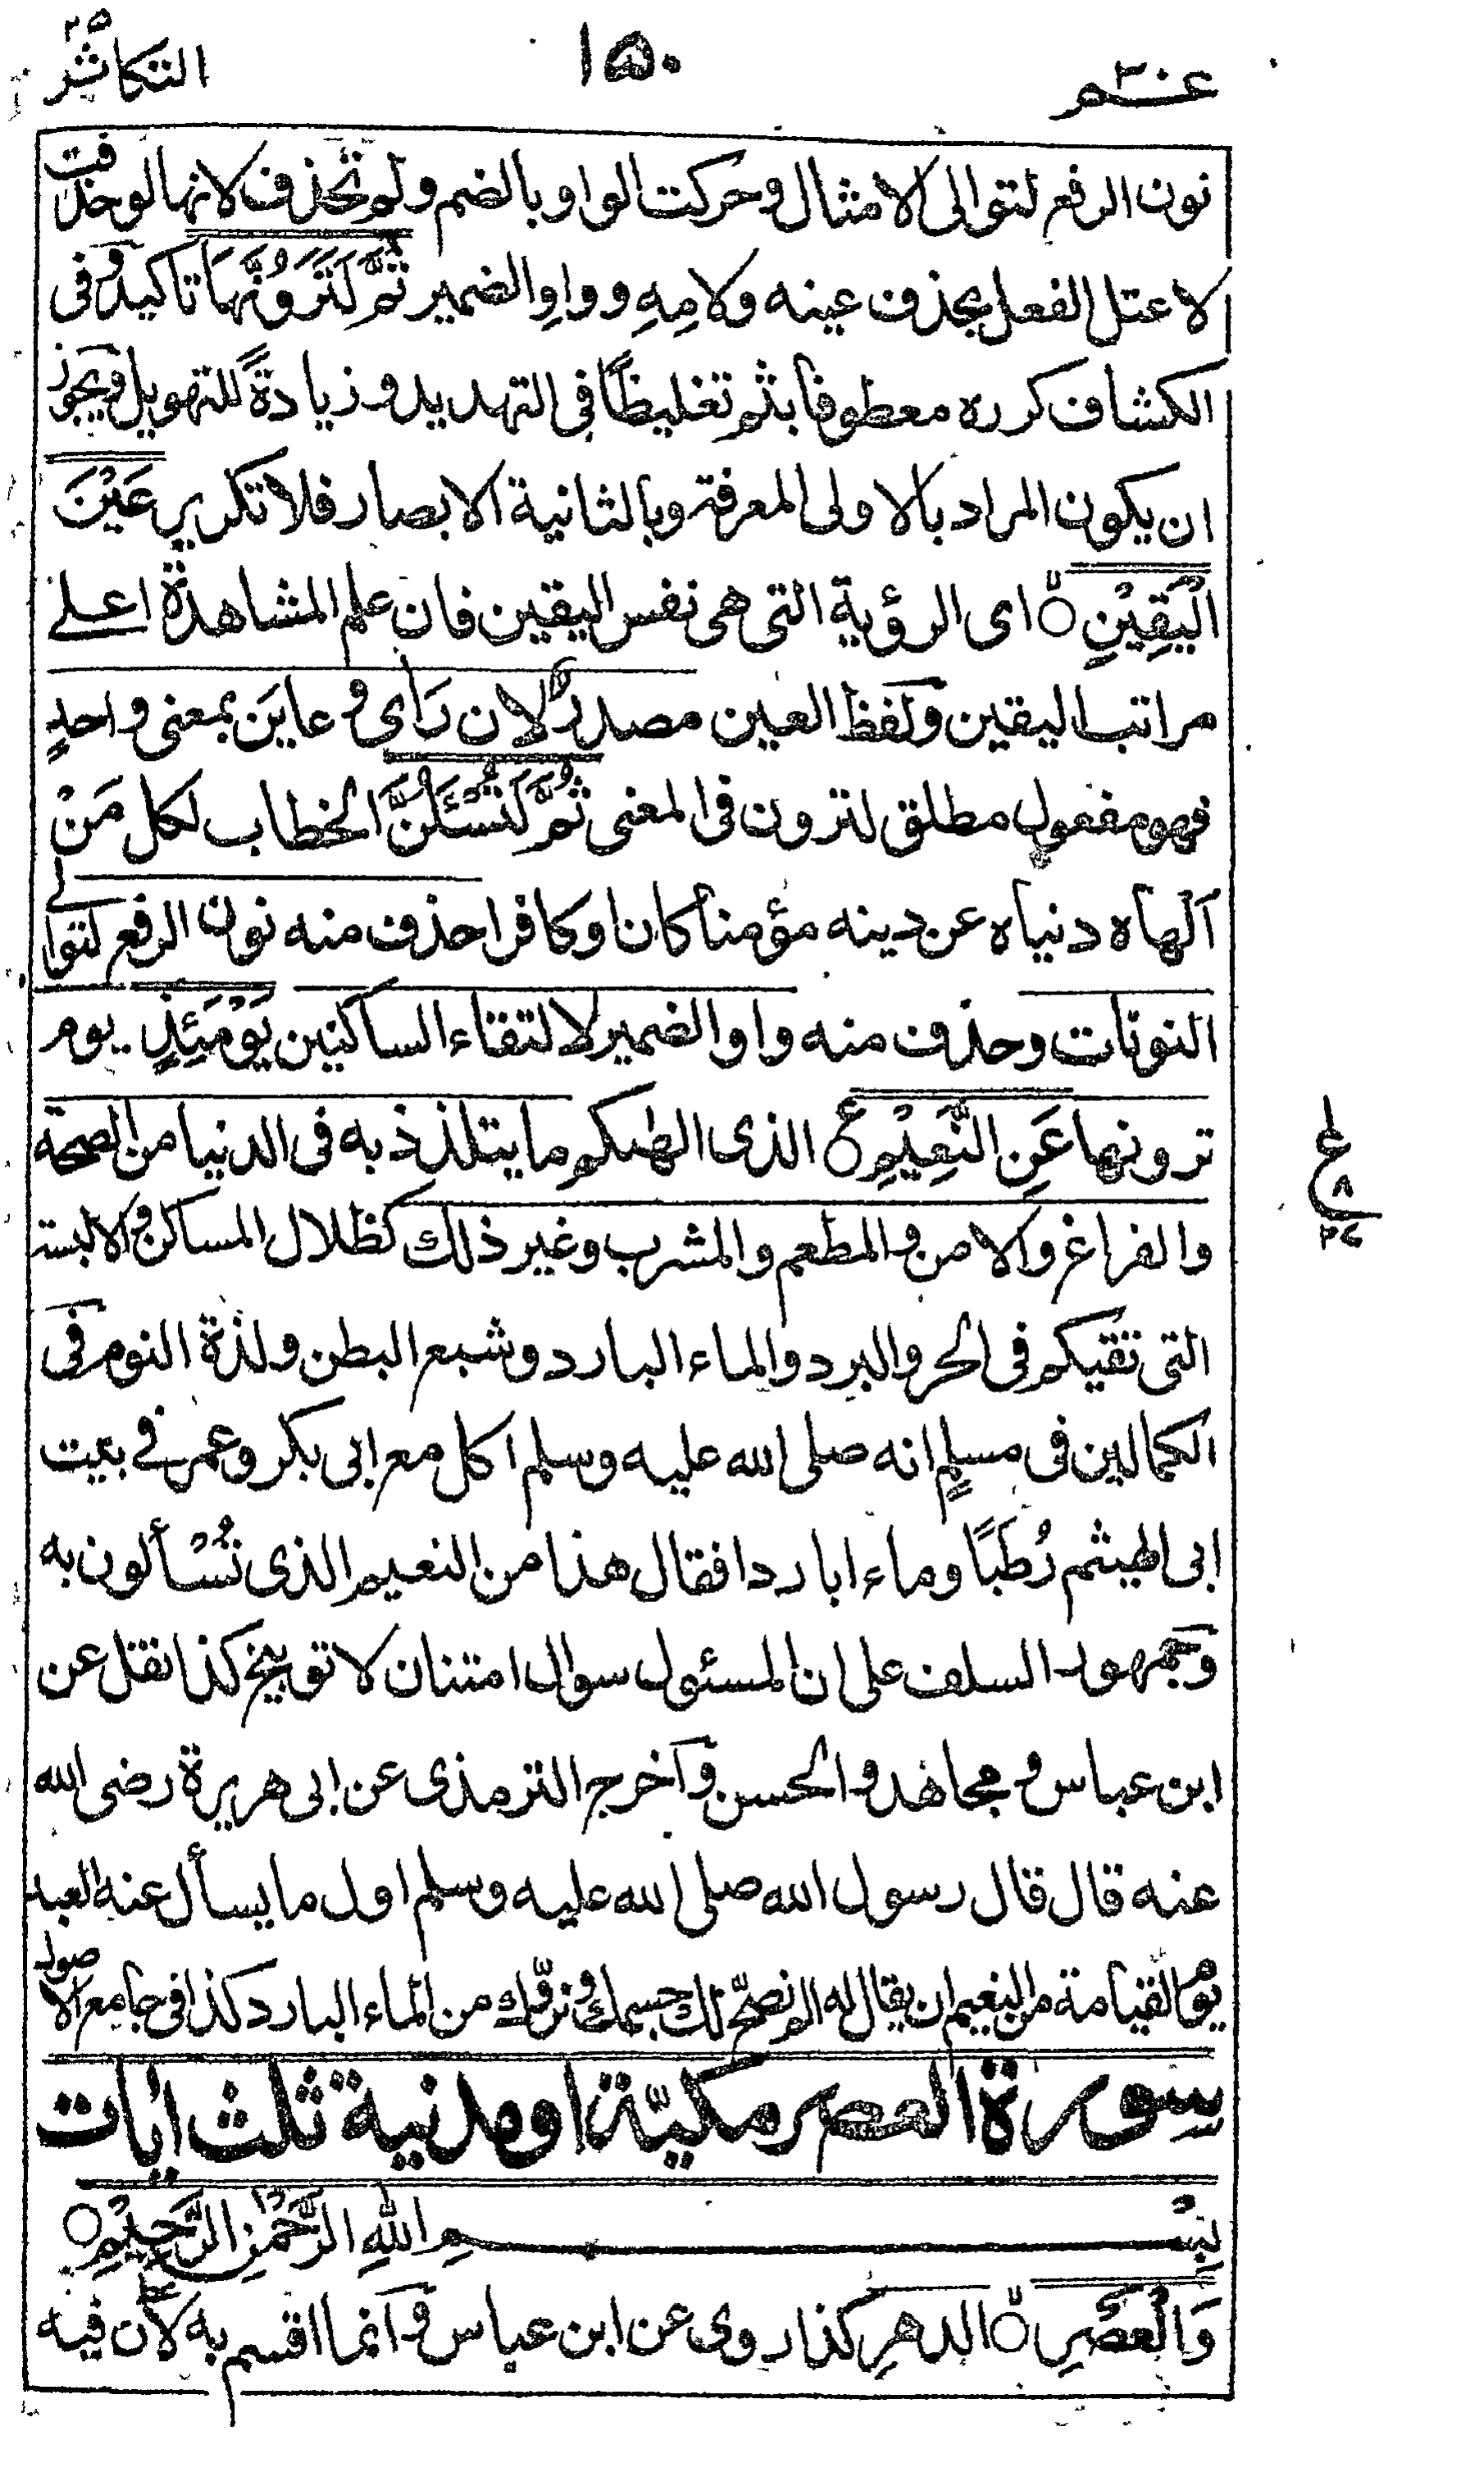 عم ٣٠
١٥٠
التكاثر
نون الرفع لتوالى الامثال وحركت الواو بالضم ولم تحذف لانها لو حذفت
لاعتل الفعل بحذف عينه ولامِهِ وواوِ الضمير ثُمَّ لَتَرَوُنَّهَا تاكيد وفى
الكشاف كرره معطوفا بثم تغليظًا فى التهديد وزيادةً للتهويل ويجوز
ان يكون المراد بالاولى المعرفة وبالثانية الابصار فلا تكرير عَيْنَ
الْيَقِيْنِ اى الرؤية التى هى نفس اليقين فان علم المشاهدة اعلے
مراتب اليقين ولفظ العين مصدر لان رَاى وعايَن بمعنى واحدٍ
فهو مفعول مطلق لترون فى المعنى ثُمَّ لَتُسْئَلُنَّ الخطاب لكل مَنْ
اَلهاه دنياه عن دينه مؤمنا كان او كافرا حذف منه نون الرفع لتوالے
النونات وحذف منه واو الضمير لالتقاء الساكنين يَوْمَئِذٍ يوم
ترونها عَنِ النَّعِيْمِ الذى الهٰكم ما يتلذذ به فى الدنيا من الصحة
والفراغ والامن والمطعم والمشرب وغير ذلك كظلال المساكن والالبسة
التى تقيكم فى الحر والبرد والماء البارد وشبع البطن ولذة النوم فى
الكمالين فى مسلمٍ انه صلى الله عليه وسلم اكل مع ابى بكر وعمر فے بيت
ابى الهيثم رُطَبًا وماء اباردا فقال هذا من النعيم الذى تُسْألون به
وجمهور السلف على ان المسئول سوال امتنان لا توبيخ كذا نقل عن
ابن عباس ومجاهد والحسن واخرج الترمذى عن ابى هريرة رضى الله
عنه قال قال رسول الله صلى الله عليه وسلم اول ما يسأل عنه العبد
يوم القيامة من النعيم ان يقال له الم نصحّ لك جسمك ونروّك من الماء البارد كذا فى جامع الاصول
سورة العصر مكيّة او مدنية ثلث ايات
بِسْمِ اللهِ الرَّحْمٰنِ الرَّحِيْمِ
وَالْعَصْرِ الدهرِ كذا روى عن ابن عباس وانما اقسم به لان فيه
ع
٨